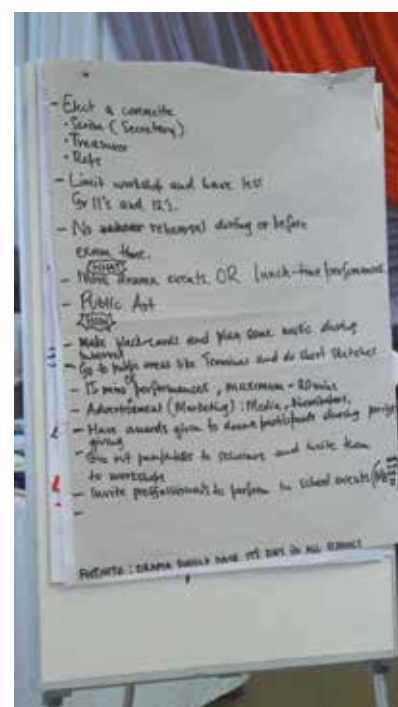 - Elect a committe
• Scribe (Secretary)
• Treasurer
• Reps
- Limit workshop and have less
Gr 11's and 12's.
- No rehearsal during or before
exam time.
WHAT
- More drama events OR lunch-time performances
- Public Art
HOW
- Make plack-cards and play some music during
interval
- Go to public areas like Terminus and do short sketches
- 15 mins performances, maximum - 20 mins
- Advertisement (Marketing): Media, Newsletters,
- Have awards given to drama participants during
giving
- Give out pamphlets to and invite them
to workshops
- Invite proffessionals to perform in school events
-
: DRAMA SHOULD HAVE ITS DAY IN ALL SCHOOLS